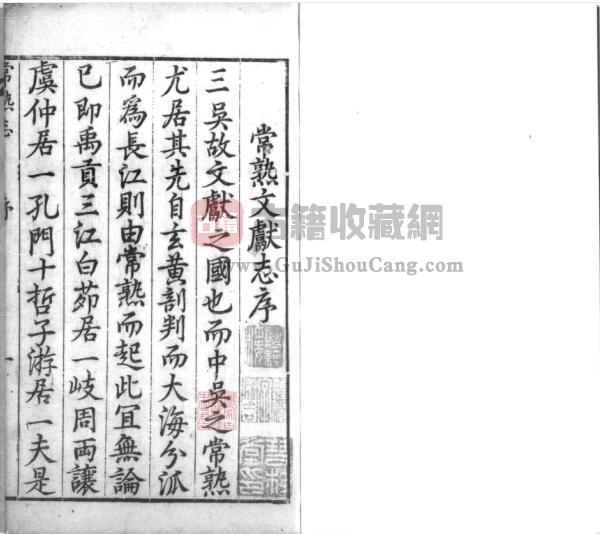 常熟文獻志序
三吳故文獻之國也而中吳之常熟
尤居其先自玄黄剖判而大海分派
而爲長江則由常熟而起此冝無論
已即禹貢三江白茆居一岐周両讓
虞仲居一孔門十哲子游居一夫是
常熟志 序 一
古籍收藏網
www.GuJiShouCang.com